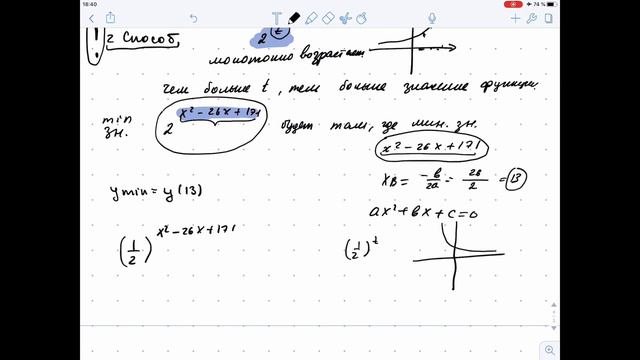 16:40
74 %
! 2 способ 2^t
монотонно возрастает
чем больше t, тем больше значение функции.
min зн. 2^{x² - 26x + 171} будет там, где мин. зн.
x² - 26x + 171
xв = -b/2a = 26/2 = 13
y min = y(13)
ax² + bx + c = 0
(1/2)^{x² - 26x + 171} (1/2)^t